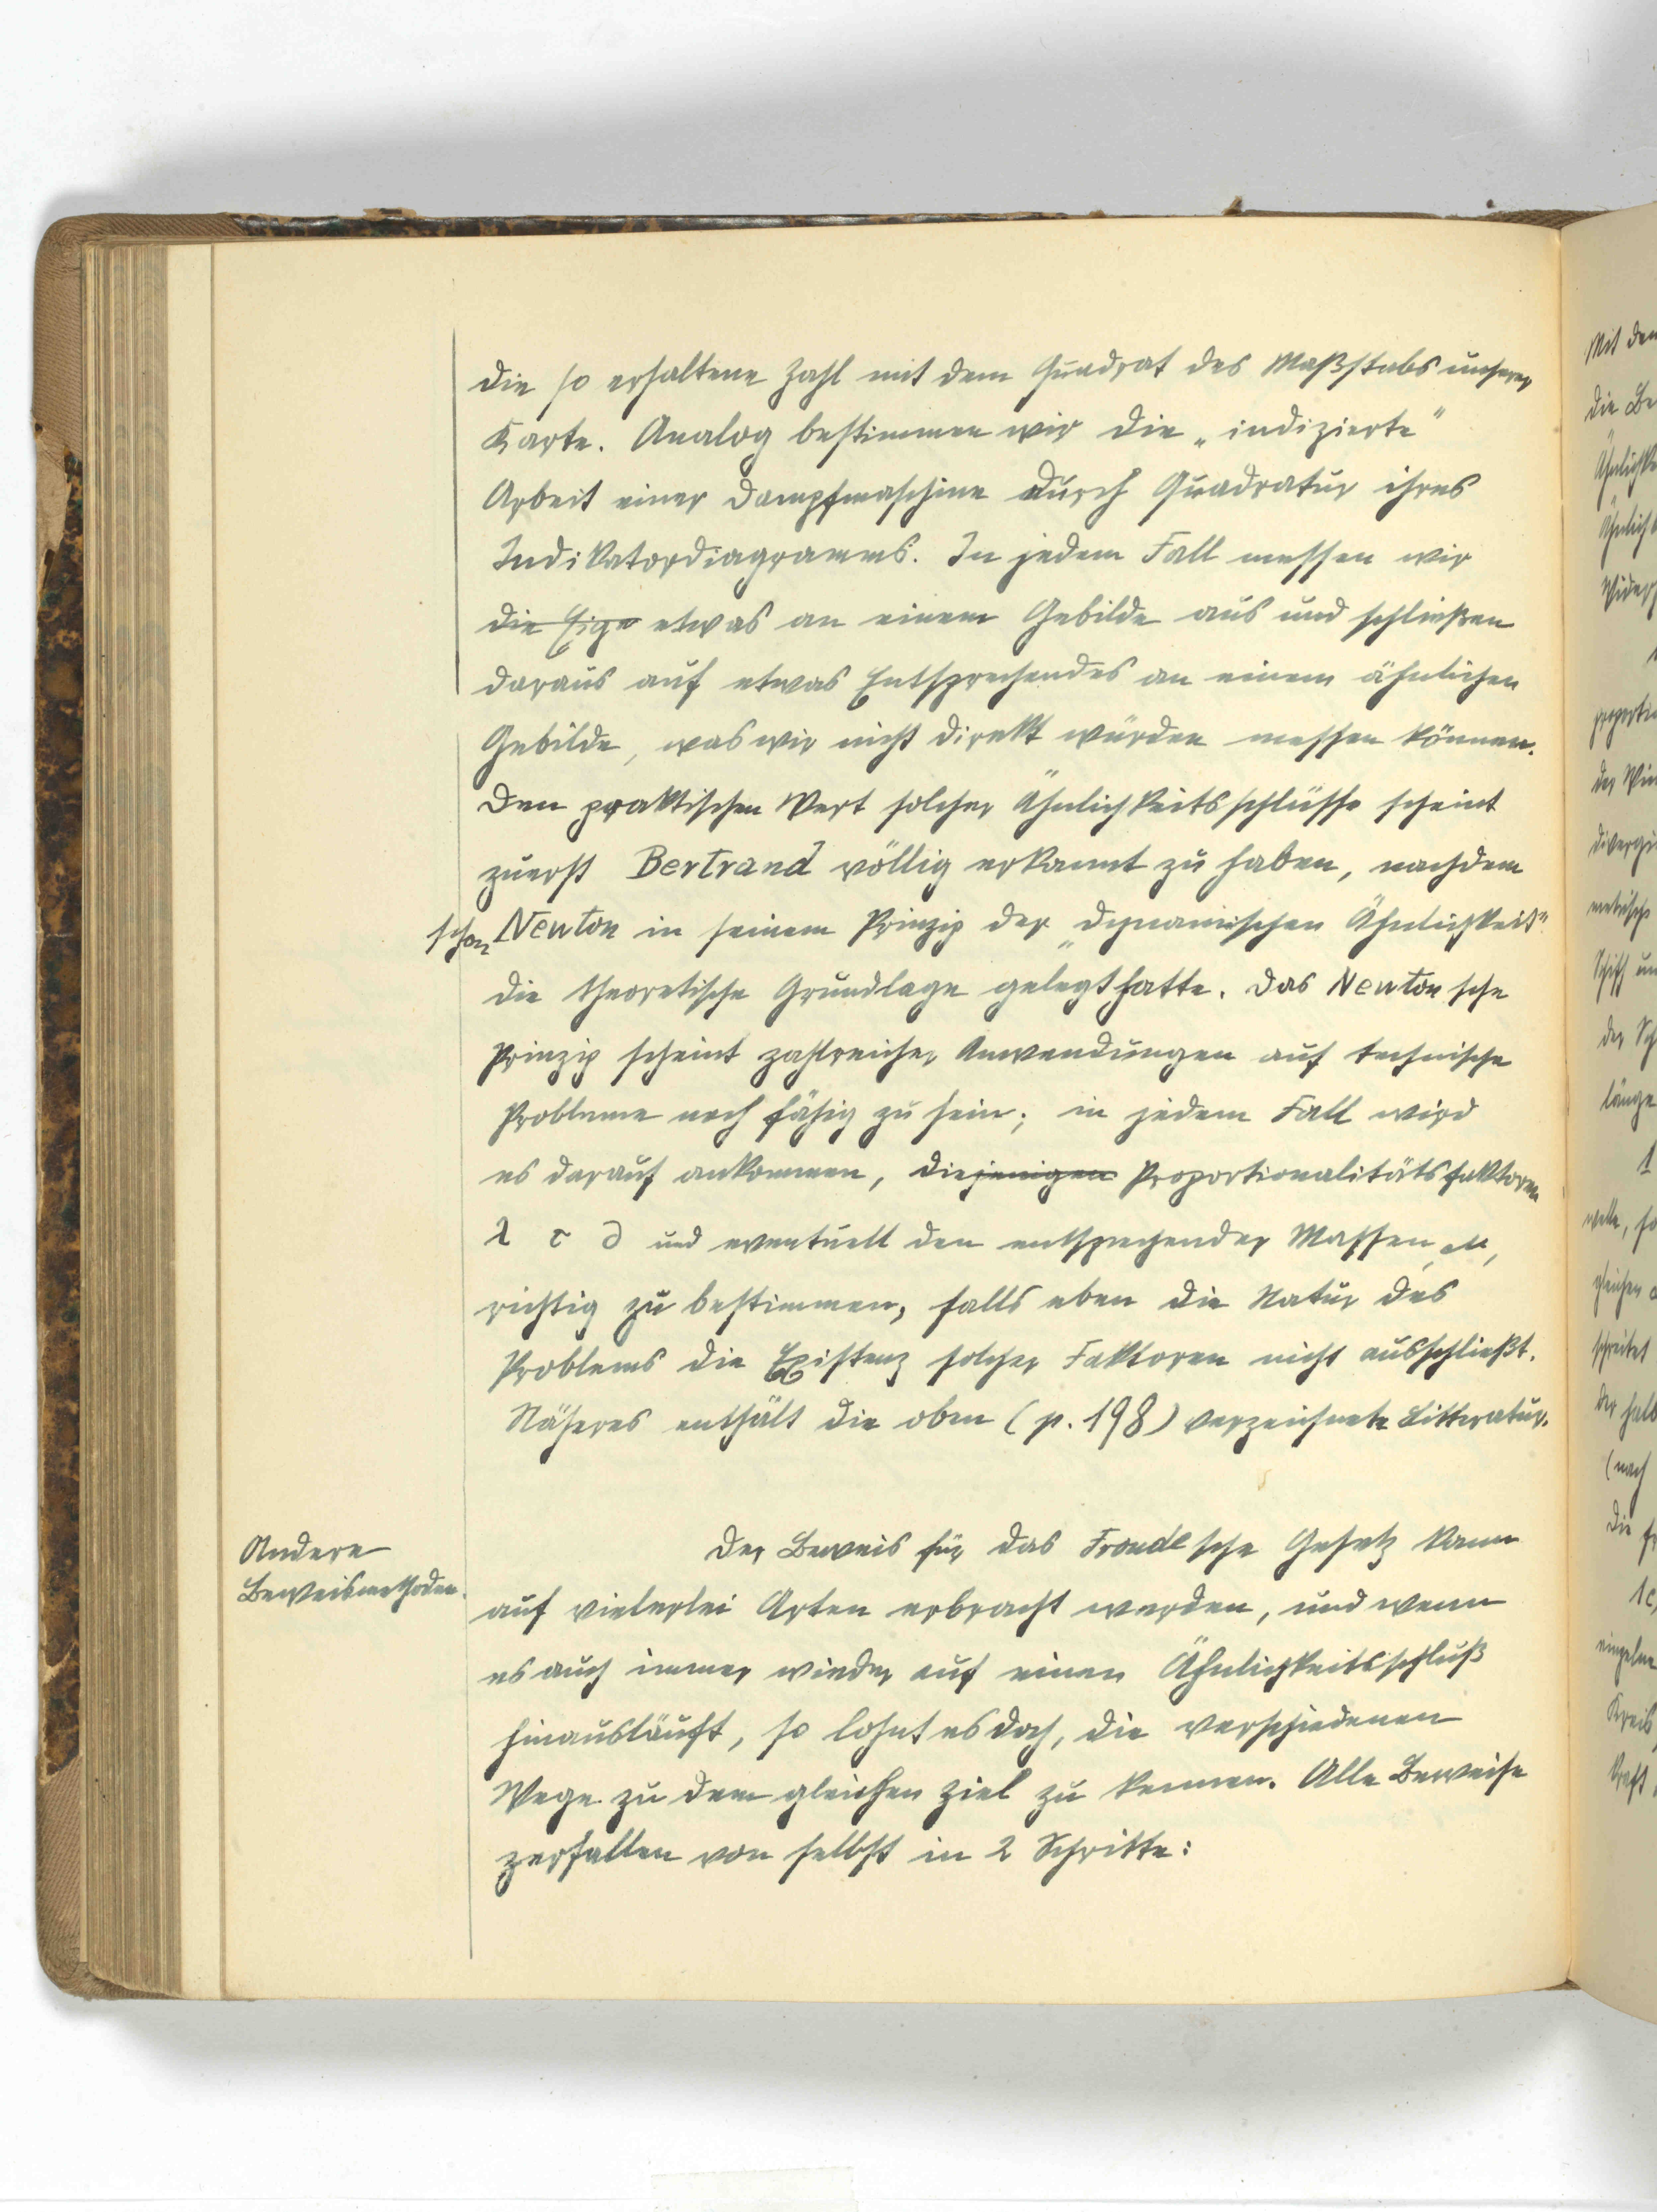 die so erhaltene Zahl mit dem Quadrat des Maßstabs unserer
Karte. Analog bestimmen wir die „indizierte"
Arbeit einer Dampfmaschine durch Quadratur ihres
Indikatordiagramms. In jedem Fall messen wir
die Eige etwas an einem Gebilde aus und schließen
daraus auf etwas Entsprechendes an einem ähnlichen
Gebilde, was wir nicht direkt würden messen können.
Den praktischen Wert solcher Ähnlichkeitsschlüsse scheint
zuerst Bertrand völlig erkannt zu haben, nachdem
schon Newton in seinem Prinzip der „dynamischen Ähnlichkeit"
die theoretische Grundlage gelegt hatte. Das Newtonsche
Prinzip scheint zahlreicher Anwendungen auf technische
Probleme noch fähig zu sein; in jedem Fall wird
es darauf ankommen, diejenigen Proportionalitätsfaktoren
λ τ und eventuell den entsprechenden Massen,
richtig zu bestimmen, falls eben die Natur des
Problems die Existenz solcher Faktoren nicht ausschließt.
Näheres enthält die oben (p. 198) verzeichnete Litteratur.
Andere
Beweismethoden.
Der Beweis für das Froudesche Gesetz kann
auf vielerlei Arten erbracht werden, und wenn
es auch immer wieder auf einen Ähnlichkeitsschluß
hinausläuft, so lohnt es doch, die verschiedenen
Wege zu dem gleichen Ziel zu kennen. Alle Beweise
zerfallen von selbst in 2 Schritte: